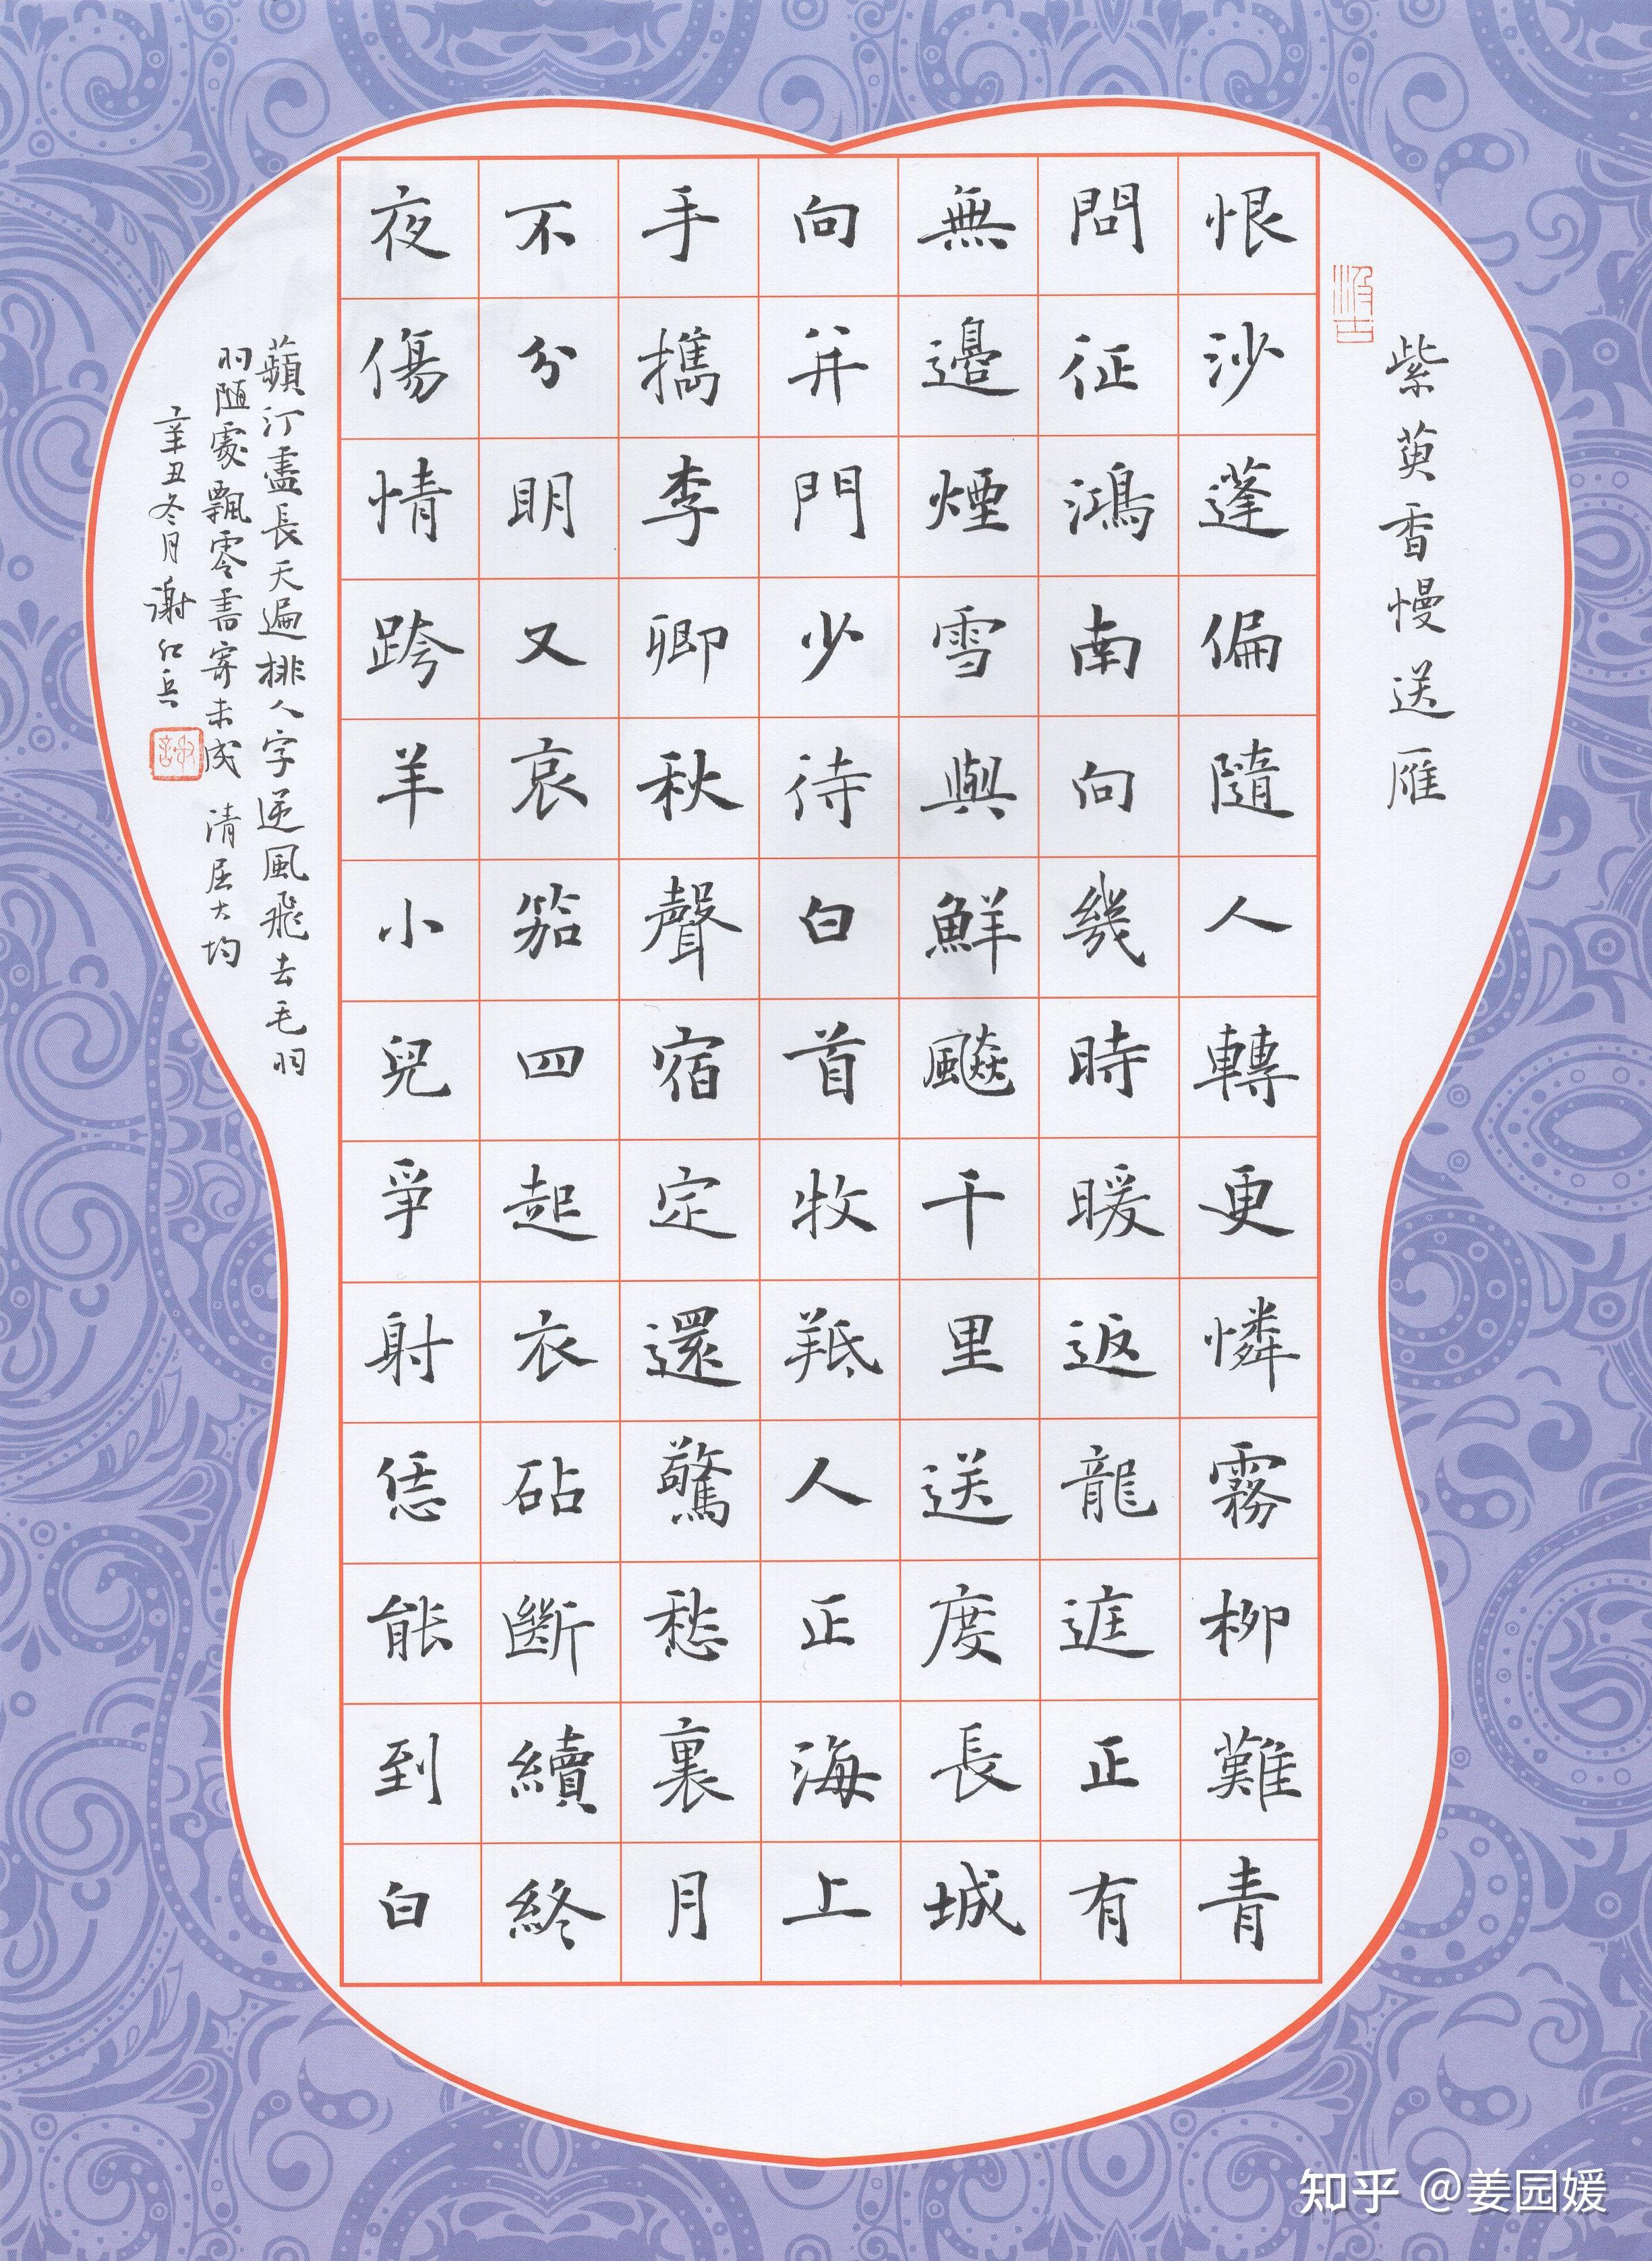 紫萸香慢送雁
恨沙蓬偏隨人轉更憐霧柳難青
問征鴻南向幾時暖返龍庭正有
無邊煙雪與鮮飇千里送度長城
向并門少待白首牧羝人正海上
手攜李卿秋聲宿定還驚愁裏月
不分明又哀笳四起衣砧斷續終
夜傷情跨羊小兒爭射恁能到白
蘋汀盡長天遍排人字逆風飛去毛羽
羽隨處飄零書寄未成 清屈大均
辛丑冬月 謝紅兵
知乎 @姜园媛